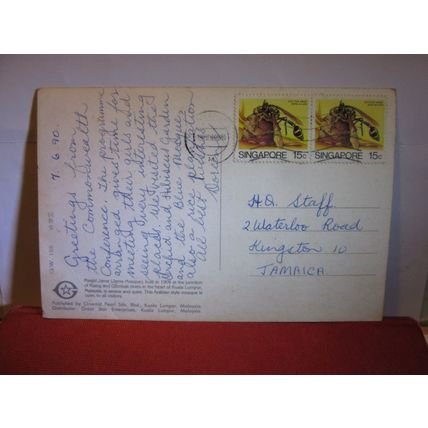 7.6.90.
Greetings from
the Commonwealth
Conference. The programme
arranged gives time for
meeting other girls and
seeing very interesting
places. We visited the
Orchid and Hibiscus Garden
and the Blue Mosque,
also a rice plantation
All best wishes
SINGAPORE 15c
SINGAPORE 15c
H.Q. Staff
2 Waterloo Road
Kingston 10
JAMAICA
Masjid Jame (Jame Mosque), built in 1909 at the junction
of Klang and Gombak rivers in the heart of Kuala Lumpur,
Malaysia, is serene and quiet. This Arabian style mosque is
open to all visitors.
Published by Oriental Pearl Sdn. Bhd., Kuala Lumpur, Malaysia.
Distributor: Great Star Enterprises, Kuala Lumpur, Malaysia.